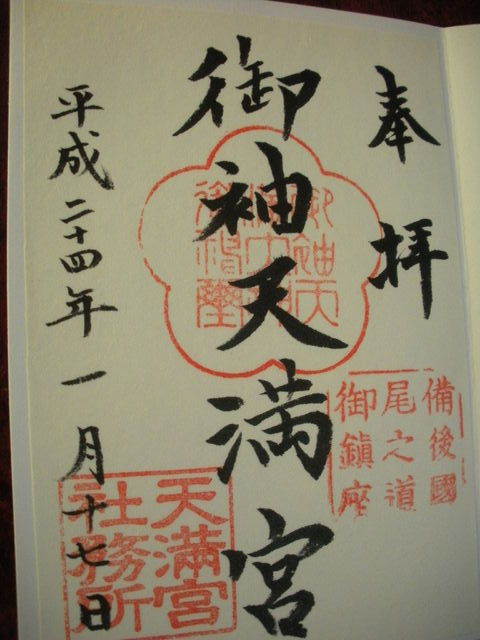 奉拝
備後國
尾之道
御鎮座
御袖天満宮
平成二十四年一月十七日
天満宮
社務所